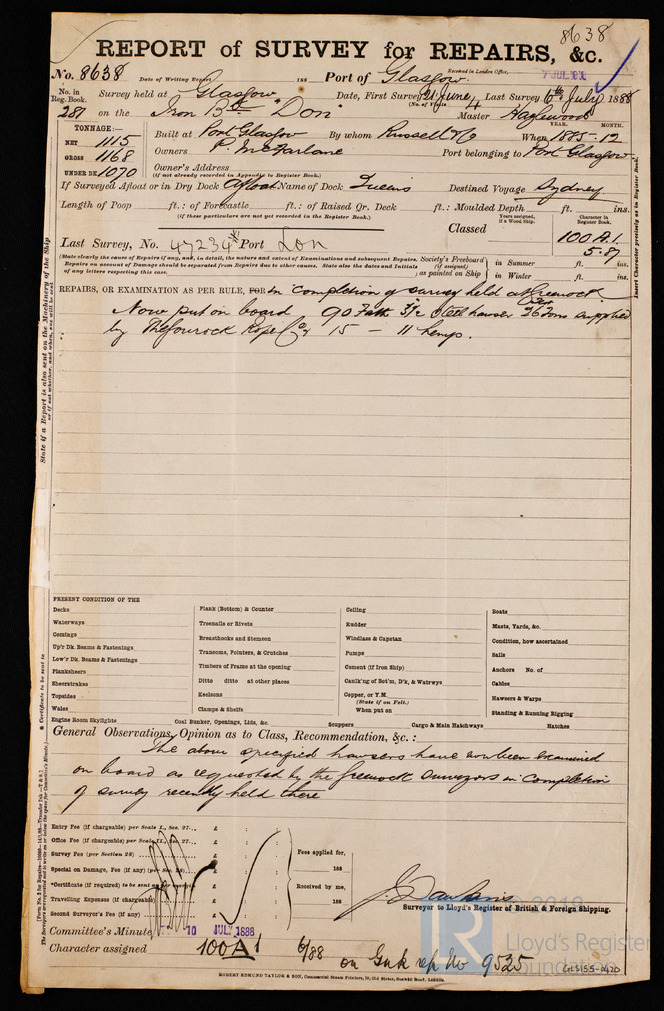 8638
REPORT of SURVEY for REPAIRS, &c.
No. 8638 Date of Writing Report 188 Port of Glasgow Received in London Office, 7 JUL 88
No. in Reg. Book. Survey held at Glasgow Date, First Survey 21 June, Last Survey 6th July 1888
(No. of Visits 4
281 on the Iron Bk "Don" Master Haylewood
TONNAGE:—
NET 1115
GROSS 1168
UNDER DK 1070
Built at Port Glasgow By whom Russell & Co When 1885-12
YEAR. MONTH.
Owners P. McFarlane Port belonging to Port Glasgow
Owner's Address
(if not already recorded in Appendix to Register Book.)
If Surveyed Afloat or in Dry Dock Afloat Name of Dock Queens Destined Voyage Sydney
Length of Poop ft.: of Forecastle ft.: of Raised Qr. Deck ft.: Moulded Depth ft. ins.
(if these particulars are not yet recorded in the Register Book.)
Classed
Years assigned, if a Wood Ship.
Character in Register Book.
100 A.1.
5.87
Last Survey, No. 47234 Port Lon
(State clearly the cause of Repairs if any, and, in detail, the nature and extent of Examinations and subsequent Repairs.
Repairs on account of Damage should be separated from Repairs due to other causes. State also the dates and Initials
of any letters respecting this case.
Society's Freeboard (if assigned) as painted on Ship
in Summer ft. ins.
in Winter ft. ins.
REPAIRS, OR EXAMINATION AS PER RULE, FOR In completion of survey held at Greenock
Now put on board 90 Fath 3½ Steel hawser 26 Tons supplied
by The Gourock Rope Co & 75 - 11 hemp.
PRESENT CONDITION OF THE
Decks
Waterways
Comings
Up'r Dk. Beams & Fastenings
Low'r Dk. Beams & Fastenings
Planksheers
Sheerstrakes
Topsides
Wales
Engine Room Skylights
Plank (Bottom) & Counter
Treenails or Rivets
Breasthooks and Stemson
Transoms, Pointers, & Crutches
Timbers of Frame at the opening
Ditto ditto at other places
Keelsons
Clamps & Shelfs
Coal Bunker, Openings, Lids, &c.
Ceiling
Rudder
Windlass & Capstan
Pumps
Cement (if Iron Ship)
Caulk'ng of Bot'm, D'k, & Watrwys
Copper, or Y.M.
(State if on Felt.)
When put on
Scuppers
Cargo & Main Hatchways
Boats
Masts, Yards, &c.
Condition, how ascertained
Sails
Anchors No. of
Cables
Hawsers & Warps
Standing & Running Rigging
Hatches
General Observations, Opinion as to Class, Recommendation, &c.:
The above specified hawsers have now been examined
on board as requested by the Greenock Surveyors in completion
of survey recently held there
Entry Fee (if chargeable) per Scale I., Sec. 27... £ : :
Office Fee (if chargeable) per Scale II., Sec. 27... £ : :
Survey Fee (per Section 28) £ : :
Special on Damage, Fee (if any) (per Sec. 28) £ : :
*Certificate (if required) to be sent as per margin £ : :
Travelling Expenses (if chargeable) £ : :
Second Surveyor's Fee (if any) £ : :
Fees applied for,
188
Received by me,
188
J. Dawkins
Surveyor to Lloyd's Register of British & Foreign Shipping.
Committee's Minute 10 JULY 1888
Character assigned 100 A 1 6/88 on Gnk rep No 9525
GLS155-0420
ROBERT EDMUND TAYLOR & SON, Commercial Steam Printers, 19, Old Street, Goswell Road, London.
State if a Report is also sent on the Machinery of the Ship
or if not whether, and when, one will be sent
Insert Character precisely as in Register Book.
* Certificate to be sent to
© 2019
LR Lloyd's Register Foundation